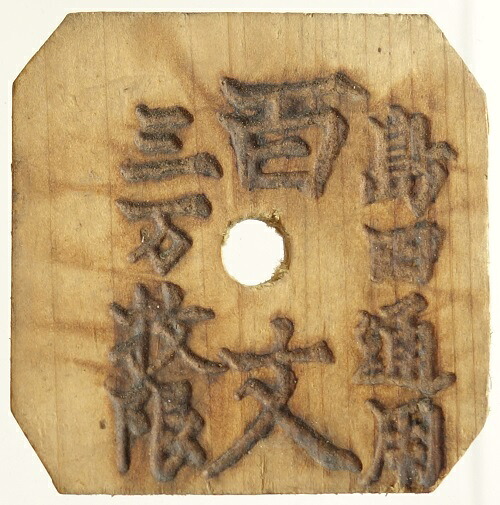 島田通用
百文
三万枚限